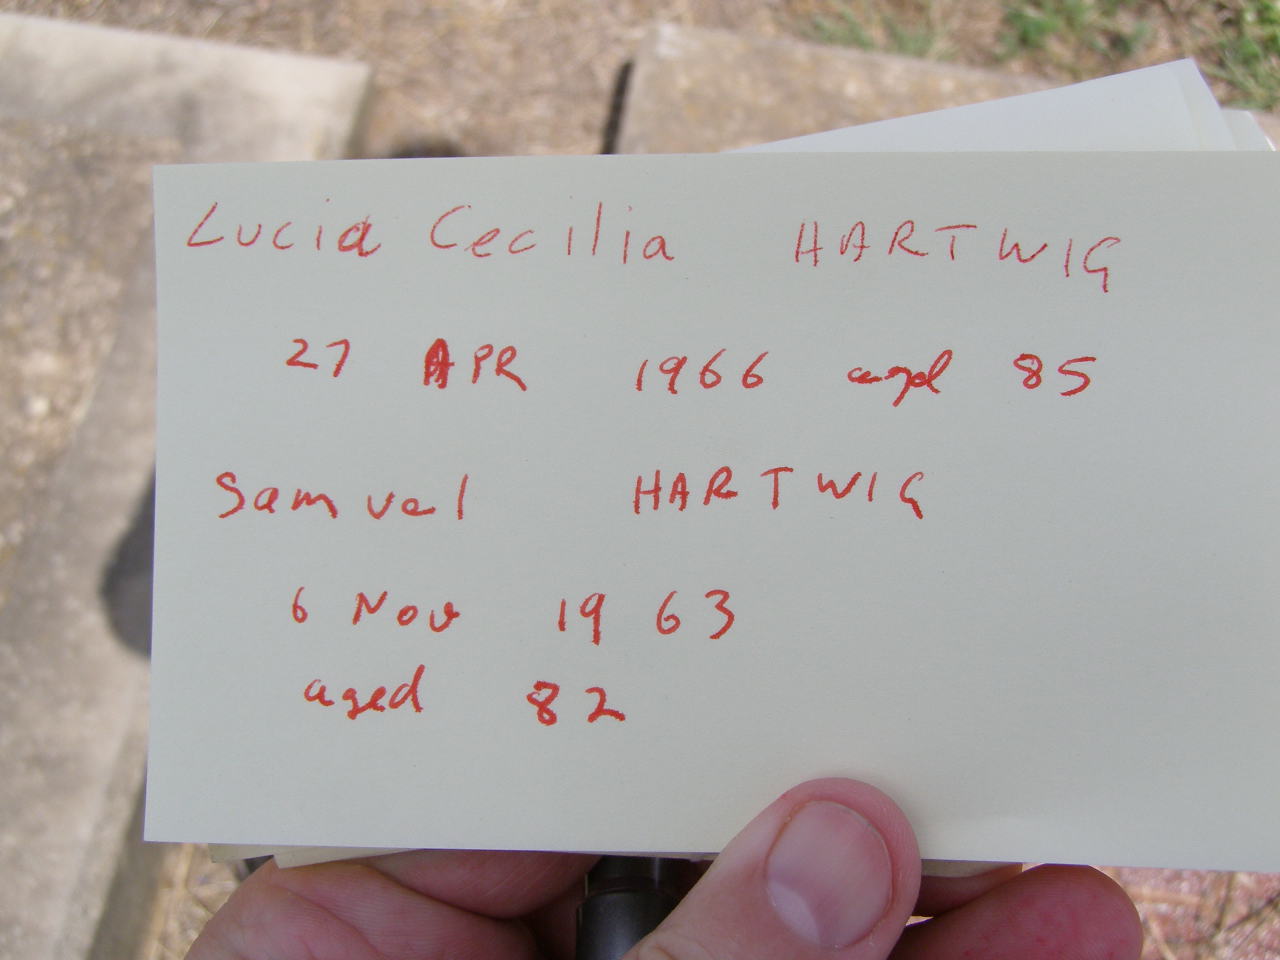 Lucia Cecilia HARTWIG
27 APR 1966 aged 85
Samuel HARTWIG
6 Nov 1963
aged 82